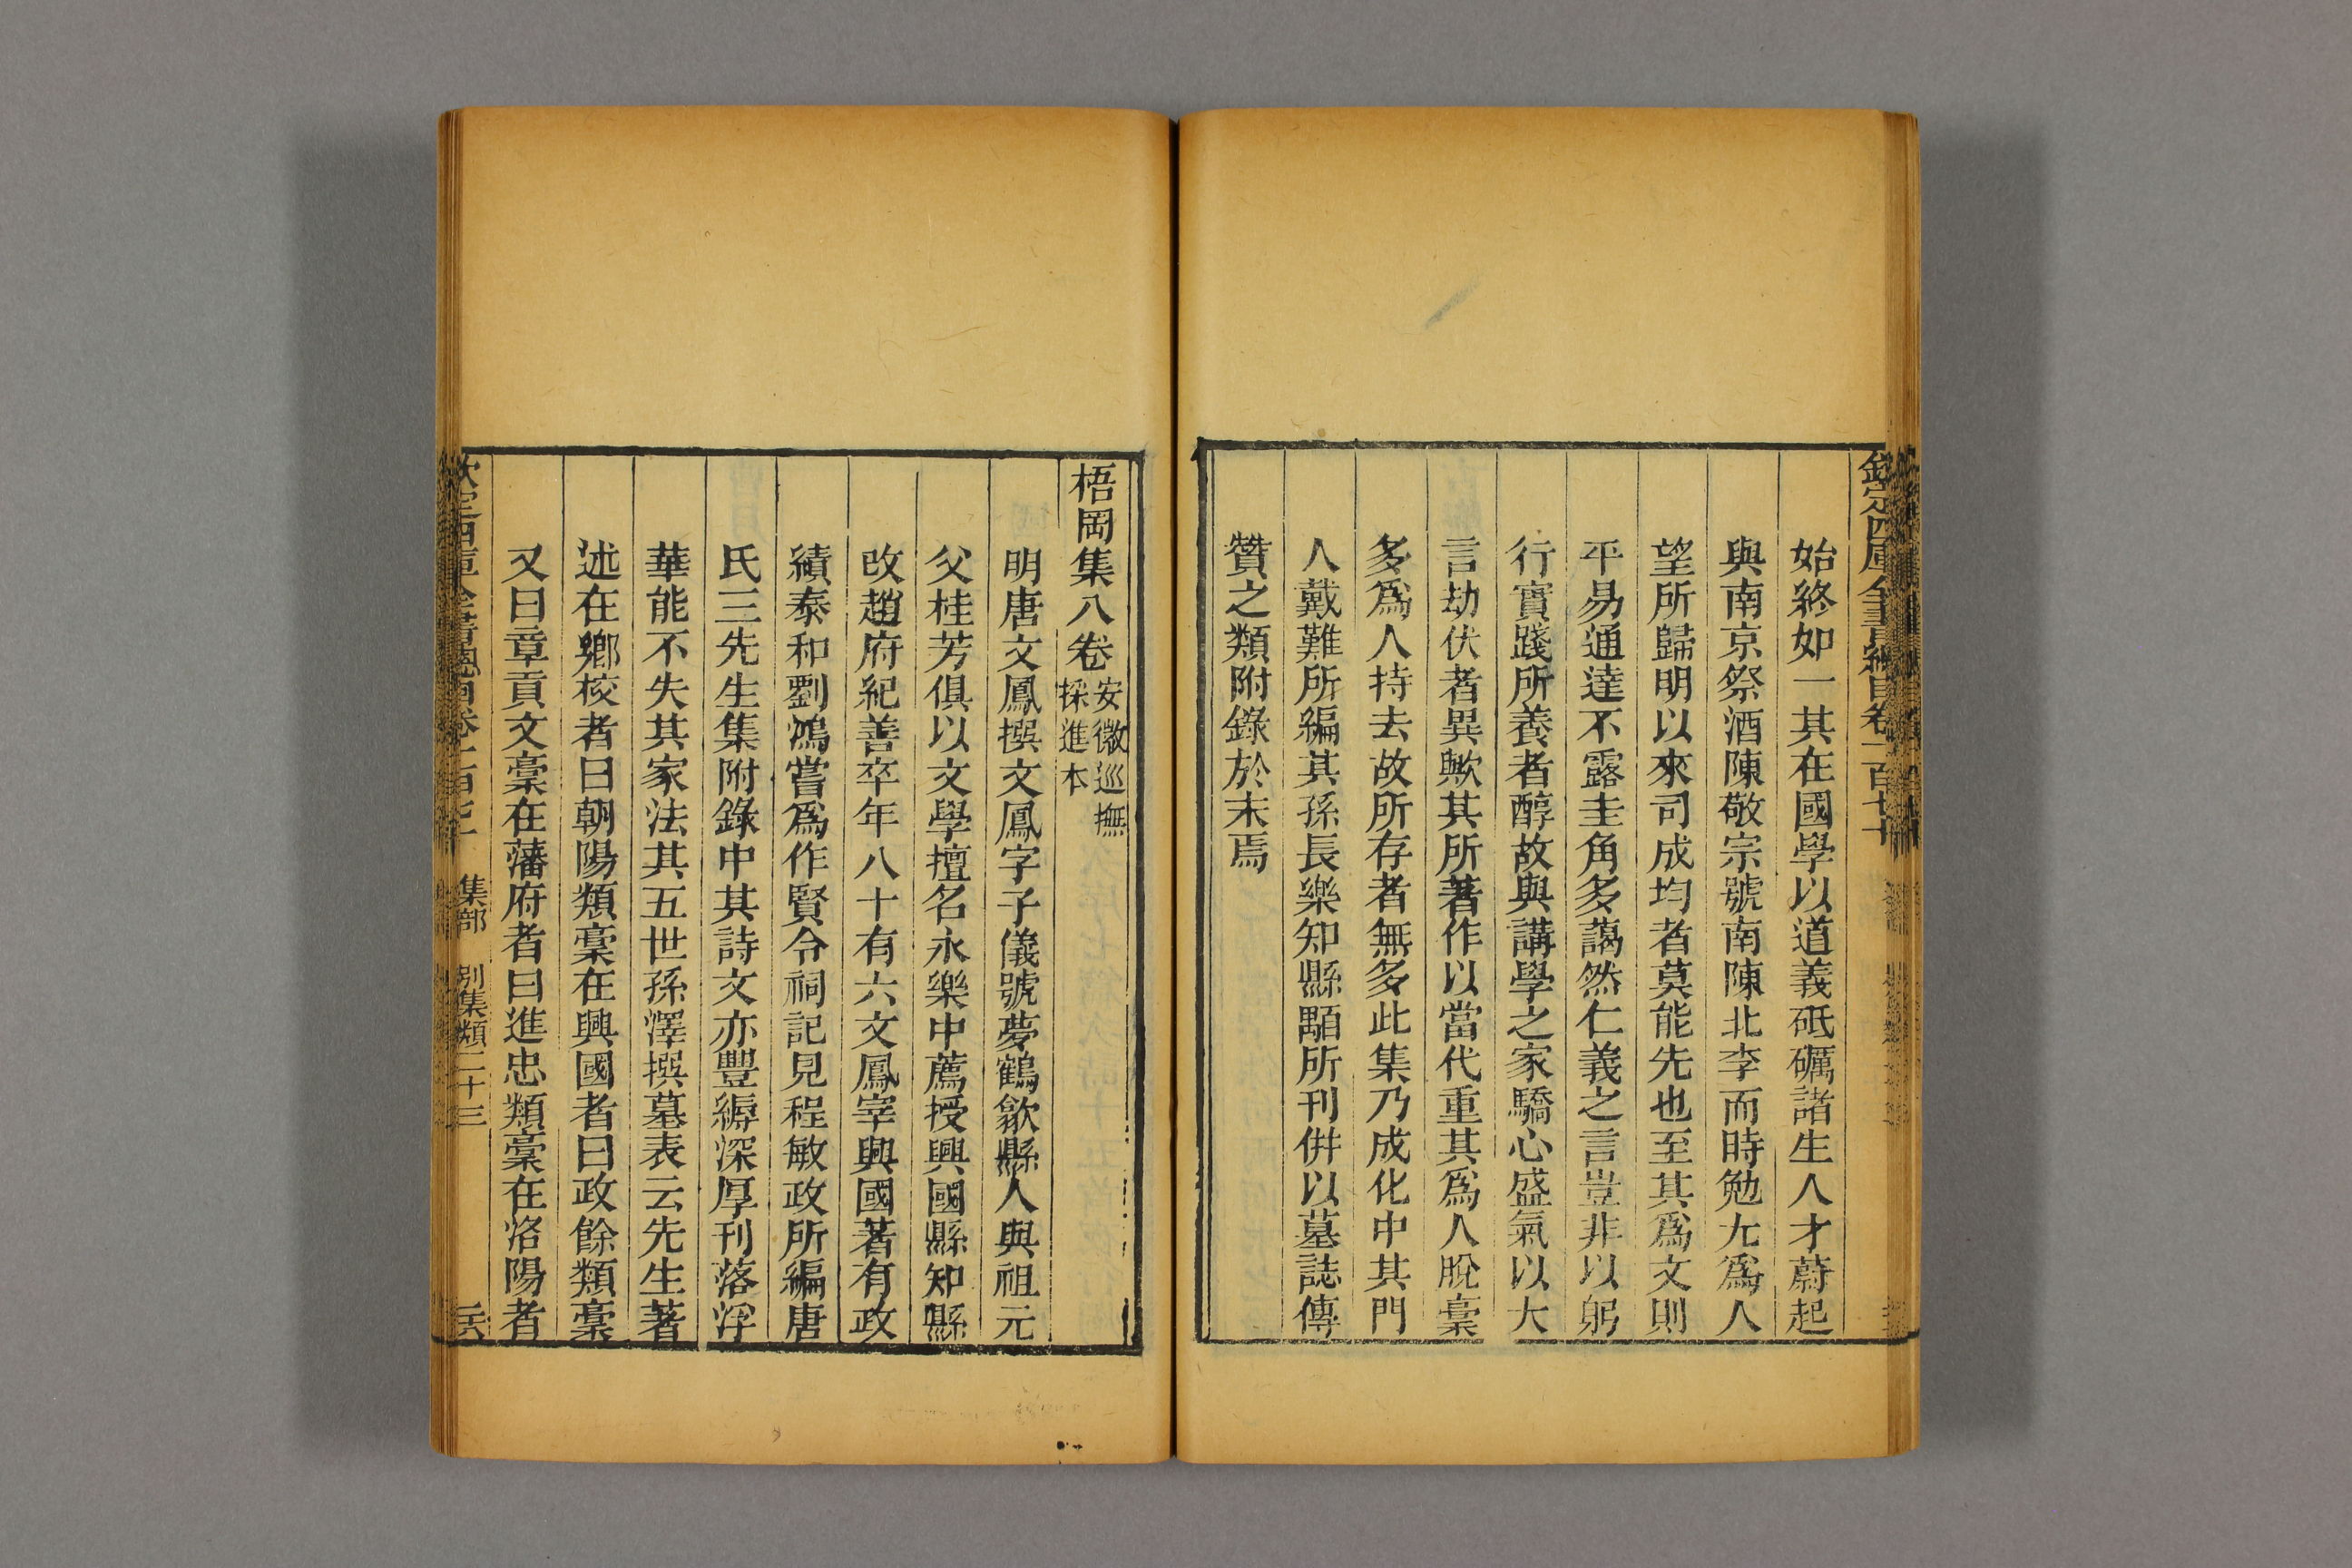 欽定四庫全書總目卷一百七十
始終如一其在國學以道義砥礪諸生人才蔚起
與南京祭酒陳敬宗號南陳北李而時勉尤爲人
望所歸明以來司成均者莫能先也至其爲文則
平易通達不露圭角多藹然仁義之言豈非以躬
行實踐所養者醇故與講學之家驕心盛氣以大
言劫伏者異歟其所著作以當代重其爲人脫稾
多爲人持去故所存者無多此集乃成化中其門
人戴難所編其孫長樂知縣顒所刊併以墓誌傳
贊之類附錄於末焉
梧岡集八卷安徽巡撫
採進本
明唐文鳳撰文鳳字子儀號夢鶴歙縣人與祖元
父桂芳俱以文學擅名永樂中薦授興國縣知縣
改趙府紀善卒年八十有六文鳳宰興國著有政
績泰和劉鴻嘗爲作賢令祠記見程敏政所編唐
氏三先生集附錄中其詩文亦豐縟深厚刊落浮
華能不失其家法其五世孫澤撰墓表云先生著
述在鄉校者曰朝陽類稾在興國者曰政餘類稾
又曰章貢文稾在藩府者曰進忠類稾在洛陽者
欽定四庫全書總目卷一百七十 集部 別集類二十三